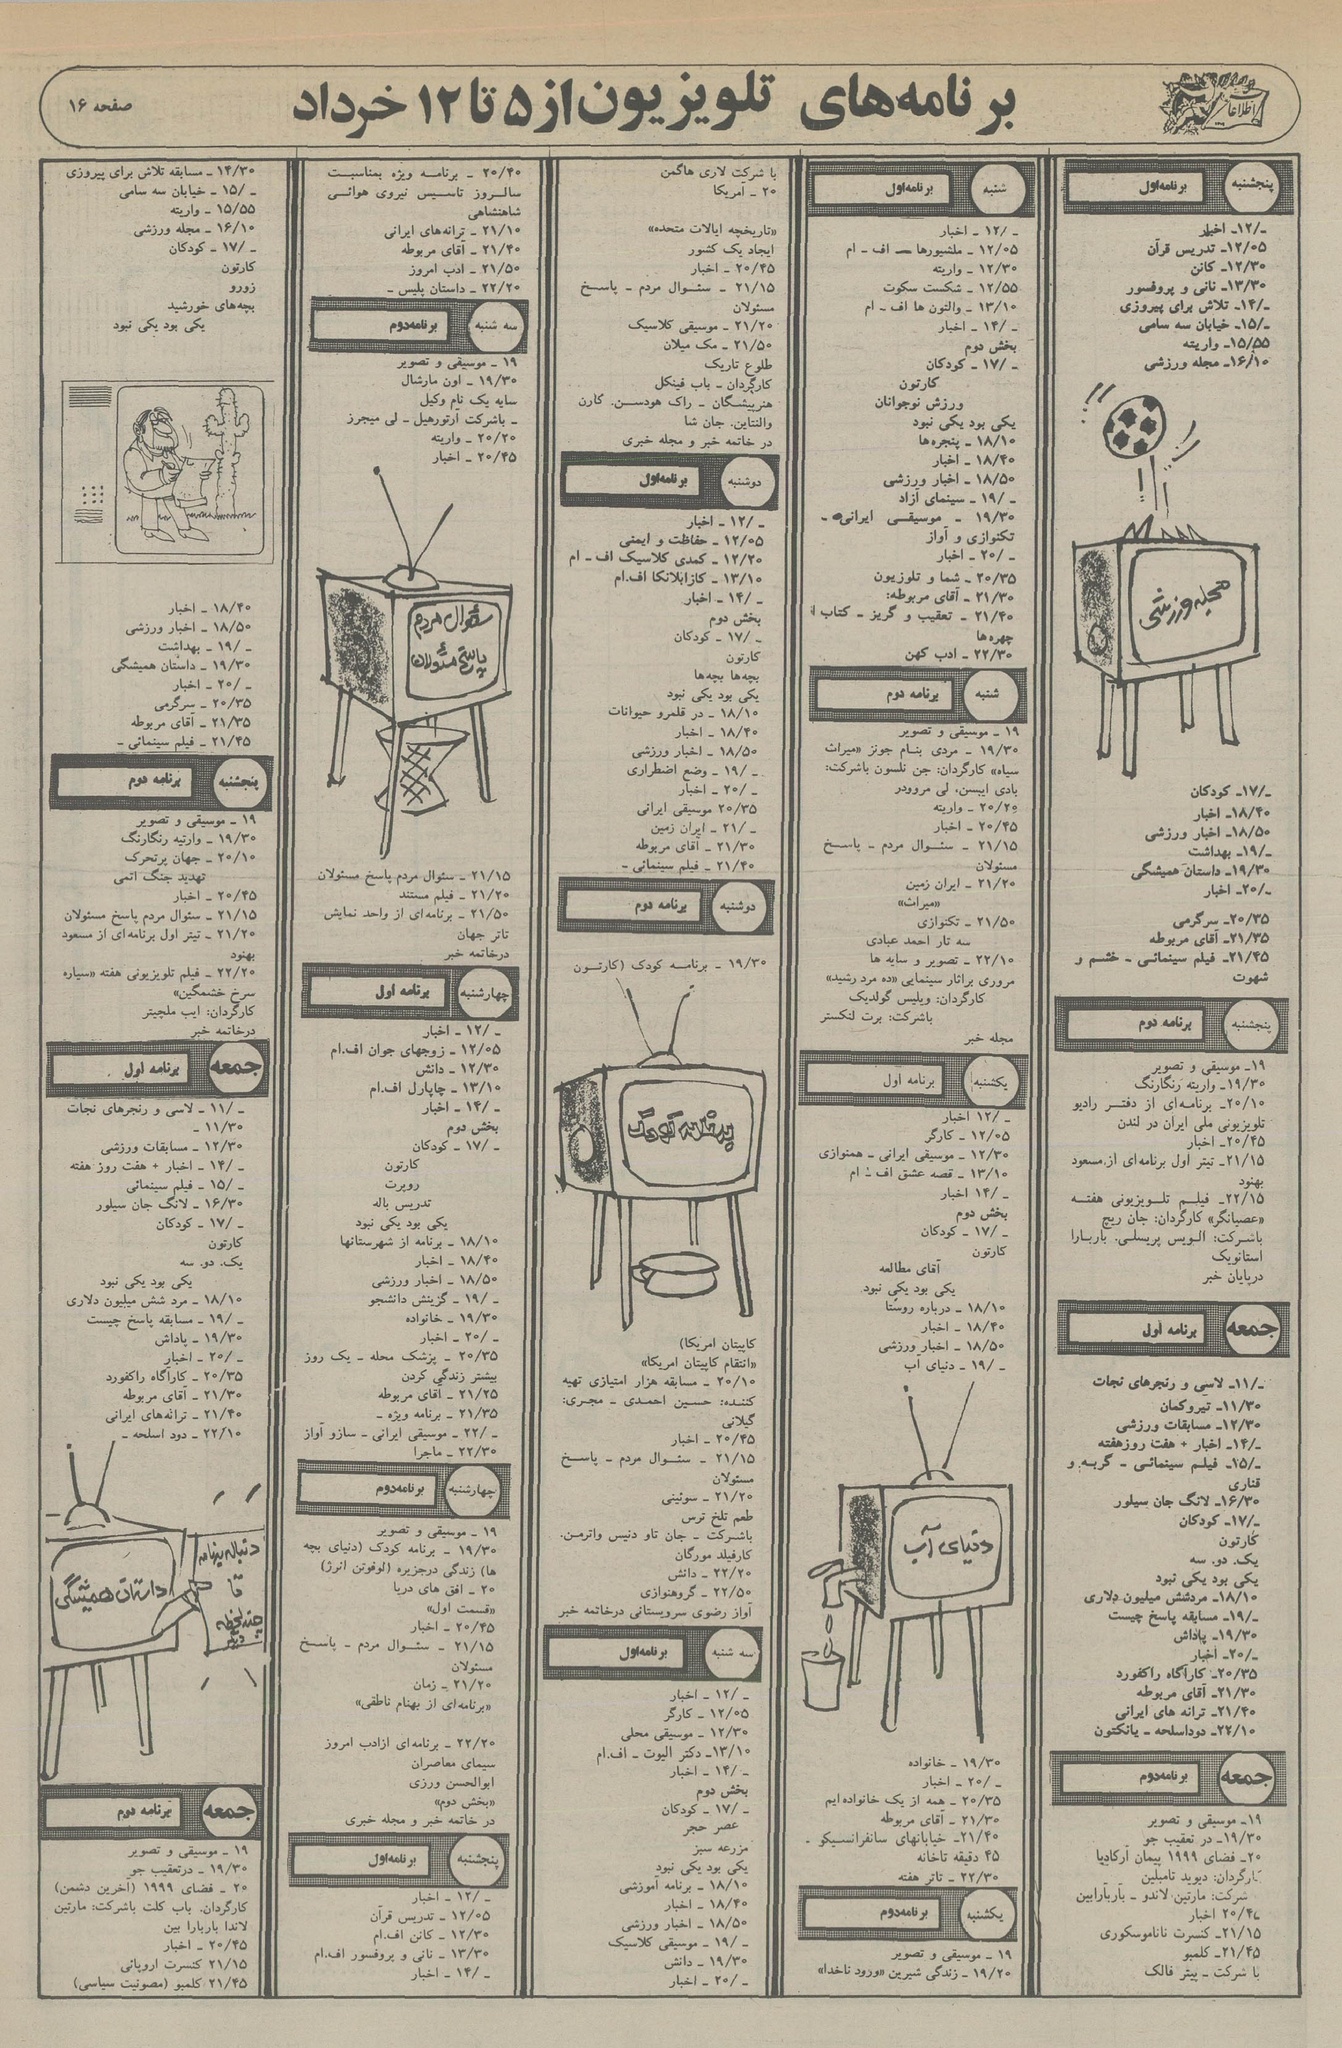 برنامه‌های تلویزیون از ۵ تا ۱۲ خرداد
صفحه ۱۶
اطلاعات
پنجشنبه
برنامه اول
ـ/۱۲ـ اخبار
۱۲/۰۵ـ تدریس قرآن
۱۲/۳۰ـ کانن
۱۳/۳۰ـ نانی و پروفسور
ـ/۱۴ـ تلاش برای پیروزی
ـ/۱۵ـ خیابان سه سامی
۱۵/۵۵ـ واریته
۱۶/۱۰ـ مجله ورزشی
مجله ورزشی
ـ/۱۷ـ کودکان
۱۸/۴۰ـ اخبار
۱۸/۵۰ـ اخبار ورزشی
ـ/۱۹ـ بهداشت
۱۹/۳۰ـ داستان همیشگی
ـ/۲۰ـ اخبار
۲۰/۳۵ـ سرگرمی
۲۱/۳۵ـ آقای مربوطه
۲۱/۴۵ـ فیلم سینمائی ـ خشم و
شهوت
پنجشنبه
برنامه دوم
۱۹ـ موسیقی و تصویر
۱۹/۳۰ـ واریته رنگارنگ
۲۰/۱۰ـ برنامه‌ای از دفتر رادیو
تلویزیونی ملی ایران در لندن
۲۰/۴۵ـ اخبار
۲۱/۱۵ـ تیتر اول برنامه‌ای از مسعود
بهنود
۲۲/۱۵ـ فیلم تلویزیونی هفته
«عصیانگر» کارگردان: جان ریچ
باشرکت: الویس پریسلی. باربارا
استانویک
درپایان خبر
جمعه
برنامه اول
ـ/۱۱ـ لاسی و رنجرهای نجات
۱۱/۳۰ـ تیروکمان
۱۲/۳۰ـ مسابقات ورزشی
ـ/۱۴ـ اخبار + هفت روزهفته
ـ/۱۵ـ فیلم سینمائی ـ گربه و
قناری
۱۶/۳۰ـ لانگ جان سیلور
ـ/۱۷ـ کودکان
کارتون
یک. دو. سه
یکی بود یکی نبود
۱۸/۱۰ـ مردشش میلیون دلاری
ـ/۱۹ـ مسابقه پاسخ چیست
۱۹/۳۰ـ پاداش
ـ/۲۰ـ اخبار
۲۰/۳۵ـ کارآگاه راکفورد
۲۱/۳۰ـ آقای مربوطه
۲۱/۴۰ـ ترانه های ایرانی
۲۲/۱۰ـ دوداسلحه ـ یانکتون
جمعه
برنامه‌دوم
۱۹ـ موسیقی و تصویر
۱۹/۳۰ـ در تعقیب جو
۲۰ـ فضای ۱۹۹۹ پیمان آرکادیا
کارگردان: دیوید تامبلین
شرکت: مارتین لاندو ـ باربارابین
اخبار
۲۱/۱۵ـ کنسرت ناناموسکوری
۲۱/۴۵ـ کلمبو
با شرکت ـ پیتر فالک
شنبه
برنامه‌اول
ـ /۱۲ ـ اخبار
۱۲/۰۵ ـ ملشیورها ـ اف ـ ام
۱۲/۳۰ ـ واریته
۱۲/۵۵ ـ شکست سکوت
۱۳/۱۰ ـ والتون ها اف ـ ام
ـ /۱۴ ـ اخبار
بخش دوم
ـ /۱۷ ـ کودکان
کارتون
ورزش نوجوانان
یکی بود یکی نبود
۱۸/۱۰ ـ پنجره‌ها
۱۸/۴۰ ـ اخبار
۱۸/۵۰ ـ اخبار ورزشی
ـ /۱۹ ـ سینمای آزاد
۱۹/۳۰ ـ موسیقی ایرانی ـ
تکنوازی و آواز
ـ /۲۰ ـ اخبار
۲۰/۳۵ ـ شما و تلوزیون
۲۱/۳۰ ـ آقای مربوطه:
۲۱/۴۰ ـ تعقیب و گریز ـ کتاب
چهره‌ها
۲۲/۳۰ ـ ادب کهن
شنبه
برنامه دوم
۱۹ ـ موسیقی و تصویر
۱۹/۳۰ ـ مردی بنام جونز «میراث
سیاه» کارگردان: جن نلسون باشرکت:
بادی ایبسن، لی مروودر
۲۰/۲۰ ـ واریته
۲۰/۴۵ ـ اخبار
۲۱/۱۵ ـ سئوال مردم ـ پاسخ
مسئولان
۲۱/۲۰ ـ ایران زمین
«میراث»
۲۱/۵۰ ـ تکنوازی
سه تار احمد عبادی
۲۲/۱۰ ـ تصویر و سایه ها
مروری براثار سینمایی «ده مرد رشید»
کارگردان: ویلیس گولدیک
باشرکت: برت لنکستر
مجله خبر
یکشنبه
برنامه اول
ـ /۱۲ اخبار
۱۲/۰۵ ـ کارگر
۱۲/۳۰ ـ موسیقی ایرانی ـ همنوازی
۱۳/۱۰ ـ قصه عشق اف ـ ام
ـ /۱۴ اخبار
بخش دوم
ـ /۱۷ ـ کودکان
کارتون
آقای مطالعه
یکی بود یکی نبود
۱۸/۱۰ ـ درباره روستا
۱۸/۴۰ ـ اخبار
۱۸/۵۰ ـ اخبار ورزشی
ـ /۱۹ ـ دنیای آب
دنیای آب
۱۹/۳۰ ـ خانواده
ـ /۲۰ ـ اخبار
۲۰/۳۵ ـ همه از یک خانواده ایم
۲۱/۳۰ ـ آقای مربوطه
۲۱/۴۰ـ خیابانهای سانفرانسیسکو ـ
۴۵ دقیقه تاخانه
۲۲/۳۰ ـ تاتر هفته
یکشنبه
برنامه‌دوم
۱۹ ـ موسیقی و تصویر
۱۹/۲۰ ـ زندگی شیرین «ورود ناخدا»
با شرکت لاری هاگمن
۲۰ ـ آمریکا
«تاریخچه ایالات متحده»
ایجاد یک کشور
۲۰/۴۵ ـ اخبار
۲۱/۱۵ ـ سئوال مردم ـ پاسخ
مسئولان
۲۱/۲۰ ـ موسیقی کلاسیک
۲۱/۵۰ ـ مک میلان
طلوع تاریک
کارگردان ـ باب فینکل
هنرپیشگان ـ راک هودسن. کارن
والنتاین. جان شا
در خاتمه خبر و مجله خبری
دوشنبه
برنامه‌اول
ـ /۱۲ ـ اخبار
۱۲/۰۵ ـ حفاظت و ایمنی
۱۲/۲۰ ـ کمدی کلاسیک اف ـ ام
۱۳/۱۰ ـ کازابلانکا اف.ام
ـ /۱۴ ـ اخبار
بخش دوم
ـ /۱۷ ـ کودکان
کارتون
بچه‌ها بچه‌ها
یکی بود یکی نبود
۱۸/۱۰ ـ در قلمرو حیوانات
۱۸/۴۰ ـ اخبار
۱۸/۵۰ ـ اخبار ورزشی
ـ /۱۹ ـ وضع اضطراری
ـ /۲۰ ـ اخبار
۲۰/۳۵ موسیقی ایرانی
ـ /۲۱ ـ ایران زمین
۲۱/۳۰ ـ آقای مربوطه
۲۱/۴۰ ـ فیلم سینمائی ـ
دوشنبه
برنامه دوم
۱۹/۳۰ ـ برنامه کودک (کارتون
برنامه کودک
کاپیتان امریکا)
«انتقام کاپیتان امریکا»
۲۰/۱۰ ـ مسابقه هزار امتیازی تهیه
کننده: حسین احمدی ـ مجری:
گیلانی
۲۰/۴۵ ـ اخبار
۲۱/۱۵ ـ سئوال مردم ـ پاسخ
مسئولان
۲۱/۲۰ ـ سوئینی
طعم تلخ ترس
باشرکت ـ جان تاو دنیس واترمن.
کارفیلد مورگان
۲۲/۲۰ ـ دانش
۲۲/۵۰ ـ گروهنوازی
آواز رضوی سروستانی درخاتمه خبر
سه شنبه
برنامه‌اول
ـ /۱۲ ـ اخبار
۱۲/۰۵ ـ کارگر
۱۲/۳۰ ـ موسیقی محلی
۱۳/۱۰ـ دکتر الیوت ـ اف.ام
ـ /۱۴ ـ اخبار
بخش دوم
ـ /۱۷ ـ کودکان
عصر حجر
مزرعه سبز
یکی بود یکی نبود
۱۸/۱۰ ـ برنامه آموزشی
۱۸/۴۰ ـ اخبار
۱۸/۵۰ ـ اخبار ورزشی
ـ /۱۹ ـ موسیقی کلاسیک
۱۹/۳۰ ـ دانش
ـ /۲۰ ـ اخبار
۲۰/۴۰ ـ برنامه ویژه بمناسبت
سالروز تاسیس نیروی هوائی
شاهنشاهی
۲۱/۱۰ ـ ترانه‌های ایرانی
۲۱/۴۰ ـ آقای مربوطه
۲۱/۵۰ ـ ادب امروز
۲۲/۲۰ ـ داستان پلیس ـ
سه شنبه
برنامه‌دوم
۱۹ ـ موسیقی و تصویر
۱۹/۳۰ ـ اون مارشال
سایه یک نام وکیل
ـ باشرکت آرتورهیل ـ لی میجرز
۲۰/۲۰ ـ واریته
۲۰/۴۵ ـ اخبار
سئوال مردم
پاسخ مسئولان
۲۱/۱۵ ـ سئوال مردم پاسخ مسئولان
۲۱/۲۰ ـ فیلم مستند
۲۱/۵۰ ـ برنامه‌ای از واحد نمایش
تاتر جهان
درخاتمه خبر
چهارشنبه
برنامه اول
ـ /۱۲ ـ اخبار
۱۲/۰۵ ـ زوجهای جوان اف.ام
۱۲/۳۰ ـ دانش
۱۳/۱۰ ـ چاپارل اف.ام
ـ /۱۴ ـ اخبار
بخش دوم
ـ /۱۷ ـ کودکان
کارتون
روپرت
تدریس باله
یکی بود یکی نبود
۱۸/۱۰ ـ برنامه از شهرستانها
۱۸/۴۰ ـ اخبار
۱۸/۵۰ ـ اخبار ورزشی
ـ /۱۹ ـ گزینش دانشجو
۱۹/۳۰ ـ خانواده
ـ /۲۰ ـ اخبار
۲۰/۳۵ ـ پزشک محله ـ یک روز
بیشتر زندگی کردن
۲۱/۲۵ ـ آقای مربوطه
۲۱/۳۵ ـ برنامه ویژه ـ
ـ /۲۲ ـ موسیقی ایرانی ـ سازو آواز
۲۲/۳۰ ـ ماجرا
چهارشنبه
برنامه‌دوم
۱۹ ـ موسیقی و تصویر
۱۹/۳۰ ـ برنامه کودک (دنیای بچه
ها) زندگی درجزیره (لوفوتن انرژ)
۲۰ ـ افق های دریا
«قسمت اول»
۲۰/۴۵ ـ اخبار
۲۱/۱۵ ـ سئوال مردم ـ پاسخ
مسئولان
۲۱/۲۰ ـ زمان
«برنامه‌ای از بهنام ناطقی»
۲۲/۲۰ ـ برنامه‌ای ازادب امروز
سیمای معاصران
ابوالحسن ورزی
«بخش دوم»
در خاتمه خبر و مجله خبری
پنجشنبه
برنامه‌اول
ـ /۱۲ ـ اخبار
۱۲/۰۵ ـ تدریس قرآن
۱۲/۳۰ ـ کانن اف.ام
۱۳/۳۰ ـ نانی و پروفسور اف.ام
ـ /۱۴ ـ اخبار
۱۴/۳۰ ـ مسابقه تلاش برای پیروزی
ـ /۱۵ ـ خیابان سه سامی
۱۵/۵۵ ـ واریته
۱۶/۱۰ ـ مجله ورزشی
ـ /۱۷ ـ کودکان
کارتون
زورو
بچه‌های خورشید
یکی بود یکی نبود
۱۸/۴۰ ـ اخبار
۱۸/۵۰ ـ اخبار ورزشی
ـ /۱۹ ـ بهداشت
۱۹/۳۰ ـ داستان همیشگی
ـ /۲۰ ـ اخبار
۲۰/۳۵ ـ سرگرمی
۲۱/۳۵ ـ آقای مربوطه
۲۱/۴۵ ـ فیلم سینمائی ـ
پنجشنبه
برنامه دوم
۱۹ ـ موسیقی و تصویر
۱۹/۳۰ ـ وارتیه رنگارنگ
۲۰/۱۰ ـ جهان پرتحرک
تهدید جنگ اتمی
۲۰/۴۵ ـ اخبار
۲۱/۱۵ ـ سئوال مردم پاسخ مسئولان
۲۱/۲۰ ـ تیتر اول برنامه‌ای از مسعود
بهنود
۲۲/۲۰ ـ فیلم تلویزیونی هفته «سیاره
سرخ خشمگین»
کارگردان: ایب ملچیتر
درخاتمه خبر
جمعه
برنامه اول
ـ /۱۱ ـ لاسی و رنجرهای نجات
۱۱/۳۰ ـ
۱۲/۳۰ ـ مسابقات ورزشی
ـ /۱۴ ـ اخبار + هفت روز هفته
ـ /۱۵ ـ فیلم سینمائی
۱۶/۳۰ ـ لانگ جان سیلور
ـ /۱۷ ـ کودکان
کارتون
یک. دو. سه
یکی بود یکی نبود
۱۸/۱۰ ـ مرد شش میلیون دلاری
ـ /۱۹ ـ مسابقه پاسخ چیست
۱۹/۳۰ ـ پاداش
ـ /۲۰ ـ اخبار
۲۰/۳۵ ـ کارآگاه راکفورد
۲۱/۳۰ ـ آقای مربوطه
۲۱/۴۰ ـ ترانه‌های ایرانی
۲۲/۱۰ ـ دود اسلحه ـ
داستان همیشگی
دنباله برنامه
تا
چند لحظه
دیگر
جمعه
برنامه دوم
۱۹ ـ موسیقی و تصویر
۱۹/۳۰ ـ درتعقیب جو
۲۰ ـ فضای ۱۹۹۹ (آخرین دشمن)
کارگردان. باب کلت باشرکت: مارتین
لاندا باربارا بین
۲۰/۴۵ ـ اخبار
۲۱/۱۵ کنسرت اروپائی
۲۱/۴۵ کلمبو (مصونیت سیاسی)